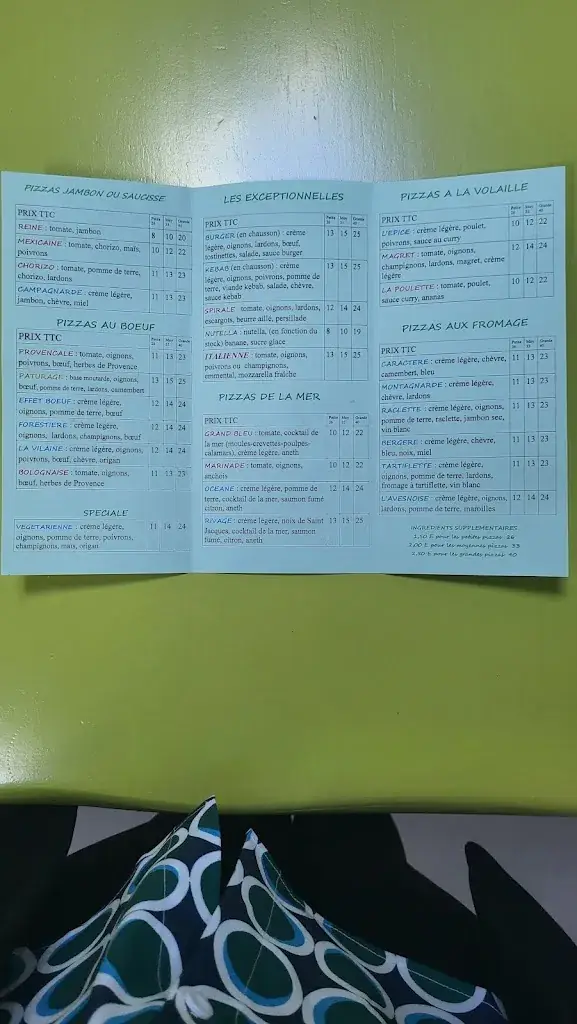 PIZZAS JAMBON OU SAUCISSE
PRIX TTC Petite 26 Moy 33 Grande 40
REINE : tomate, jambon 8 10 20
MEXICAINE : tomate, chorizo, maïs, 10 12 22
poivrons
CHORIZO : tomate, pomme de terre, 11 13 23
chorizo, lardons
CAMPAGNARDE : crème légère, 11 13 23
jambon, chèvre, miel
PIZZAS AU BOEUF
PRIX TTC Petite 26 Moy 33 Grande 40
PROVENCALE : tomate, oignons, 11 13 23
poivrons, bœuf, herbes de Provence
PATURAGE : base moutarde, oignons, 13 15 25
bœuf, pomme de terre, lardons, camembert
EFFET BOEUF : crème légère, 12 14 24
oignons, pomme de terre, bœuf
FORESTIERE : crème légère, 12 14 24
oignons, lardons, champignons, bœuf
LA VILAINE : crème légère, oignons, 12 14 24
poivrons, bœuf, chèvre, origan
BOLOGNAISE : tomate, oignons, 11 13 23
bœuf, herbes de Provence
SPECIALE
VEGETARIENNE : crème légère, 11 14 24
oignons, pomme de terre, poivrons,
champignons, maïs, origan
LES EXCEPTIONNELLES
PRIX TTC Petite 26 Moy 33 Grande 40
BURGER (en chausson) : crème 13 15 25
légère, oignons, lardons, bœuf,
rostinettes, salade, sauce burger
KEBAB (en chausson) : crème 13 15 25
légère, oignons, poivrons, pomme de
terre, viande kebab, salade, chèvre,
sauce kebab
SPIRALE : tomate, oignons, lardons, 12 14 24
escargots, beurre aillé, persillade
NUTELLA : nutella, (en fonction du 8 10 19
stock) banane, sucre glace
ITALIENNE : tomate, oignons, 13 15 25
poivrons ou champignons,
emmental, mozzarella fraîche
PIZZAS DE LA MER
PRIX TTC Petite 26 Moy 33 Grande 40
GRAND BLEU : tomate, cocktail de 10 12 22
la mer (moules-crevettes-poulpes-
calamars), crème légère, aneth
MARINADE : tomate, oignons, 10 12 22
anchois
OCEANE : crème légère, pomme de 12 14 24
terre, cocktail de la mer, saumon fumé
citron, aneth
RIVAGE : crème légère, noix de Saint 13 15 25
Jacques, cocktail de la mer, saumon
fumé, citron, aneth
PIZZAS A LA VOLAILLE
PRIX TTC Petite 26 Moy 33 Grande 40
L'EPICE : crème légère, poulet, 10 12 22
poivrons, sauce au curry
MAGRET : tomate, oignons, 12 14 24
champignons, lardons, magret, crème
légère
LA POULETTE : tomate, poulet, 10 12 22
sauce curry, ananas
PIZZAS AUX FROMAGE
PRIX TTC Petite 26 Moy 33 Grande 40
CARACTERE : crème légère, chèvre, 11 13 23
camembert, bleu
MONTAGNARDE : crème légère, 11 13 23
chèvre, lardons
RACLETTE : crème légère, oignons, 11 13 23
pomme de terre, raclette, jambon sec,
vin blanc
BERGERE : crème légère, chèvre, 11 13 23
bleu, noix, miel
TARTIFLETTE : crème légère, 11 13 23
oignons, pomme de terre, lardons,
fromage à tartiflette, vin blanc
L'AVESNOISE : crème légère, oignons, 12 14 24
lardons, pomme de terre, maroilles
INGREDIENTS SUPPLEMENTAIRES
1,50 € pour les petites pizzas 26
2,00 € pour les moyennes pizzas 33
2,50 € pour les grandes pizzas 40